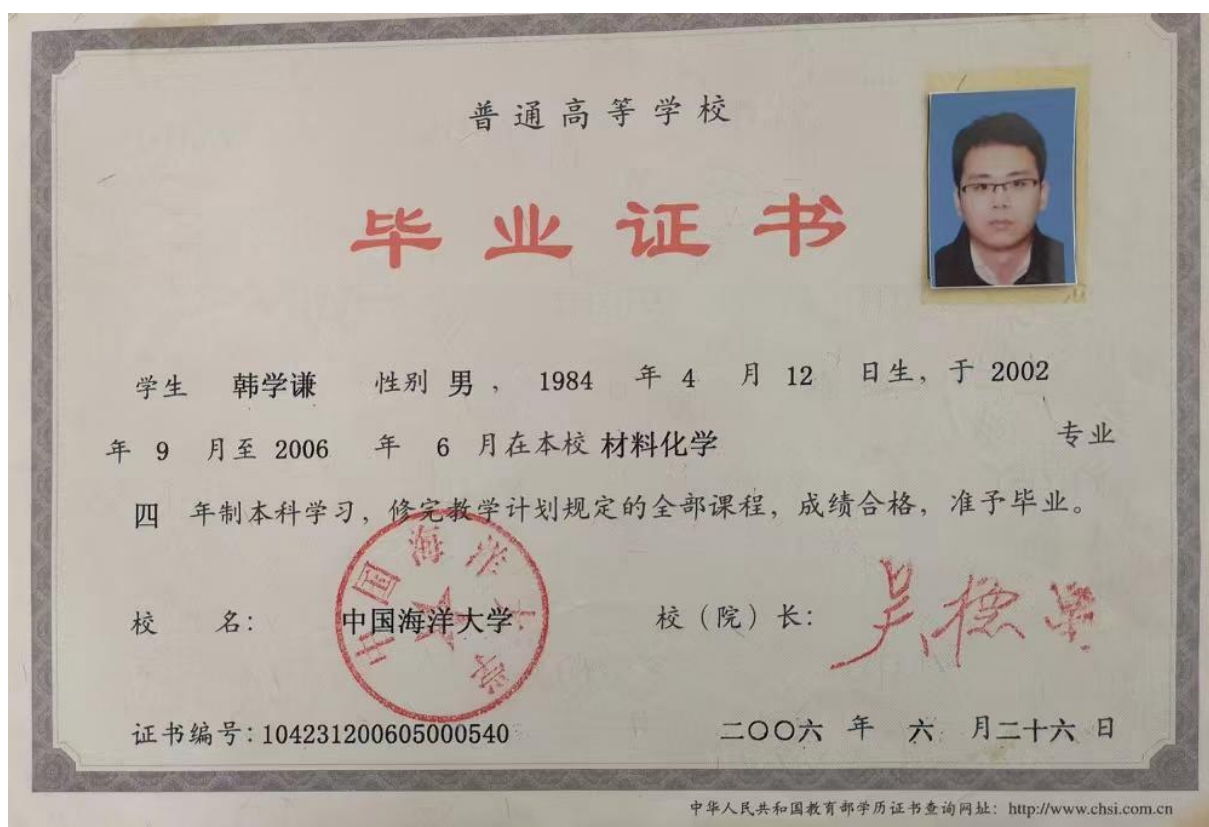 普通高等学校
毕业证书
学生 韩学谦 性别 男 ， 1984 年 4 月 12 日生，于 2002
年 9 月至 2006 年 6 月在本校 材料化学 专业
四 年制本科学习，修完教学计划规定的全部课程，成绩合格，准予毕业。
中国海洋大学
校 名： 中国海洋大学 校（院）长： 吴德星
证书编号：104231200605000540 二〇〇六 年 六 月二十六 日
中华人民共和国教育部学历证书查询网址：http://www.chsi.com.cn